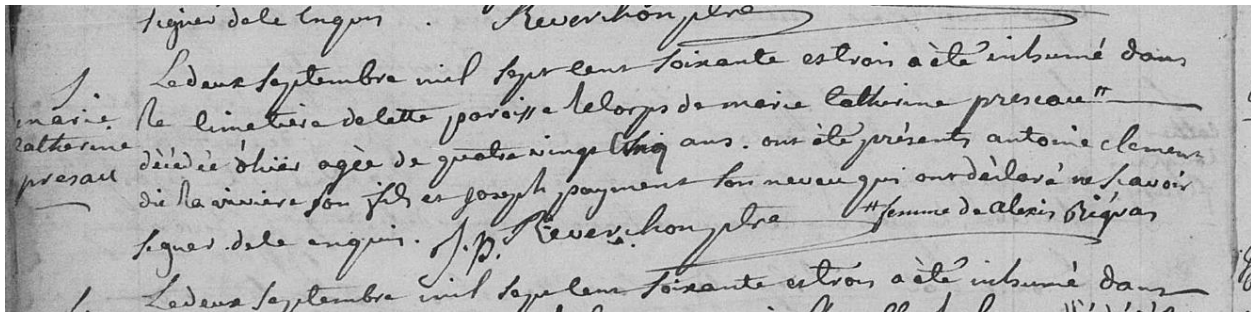 signer dele Enquis. Reverchon ptre
S.
marie
Catherine
presau
Ledeux septembre mil sept cent soixante et trois a èté inhumé dans
le cimetière de cette paroisse le corps de marie Catherine preseau #
décédée d'hier agèe de quatre vingt cinq ans. ont èté présents antoine clement
dit la riviere son fils et joseph payment son neveu qui ont dèclarè ne scavoir
signer. dele enquis. J. p. Reverchon ptre # femme de alexis
Ledeux septembre mil sept cent soixante et trois a èté inhumé dans